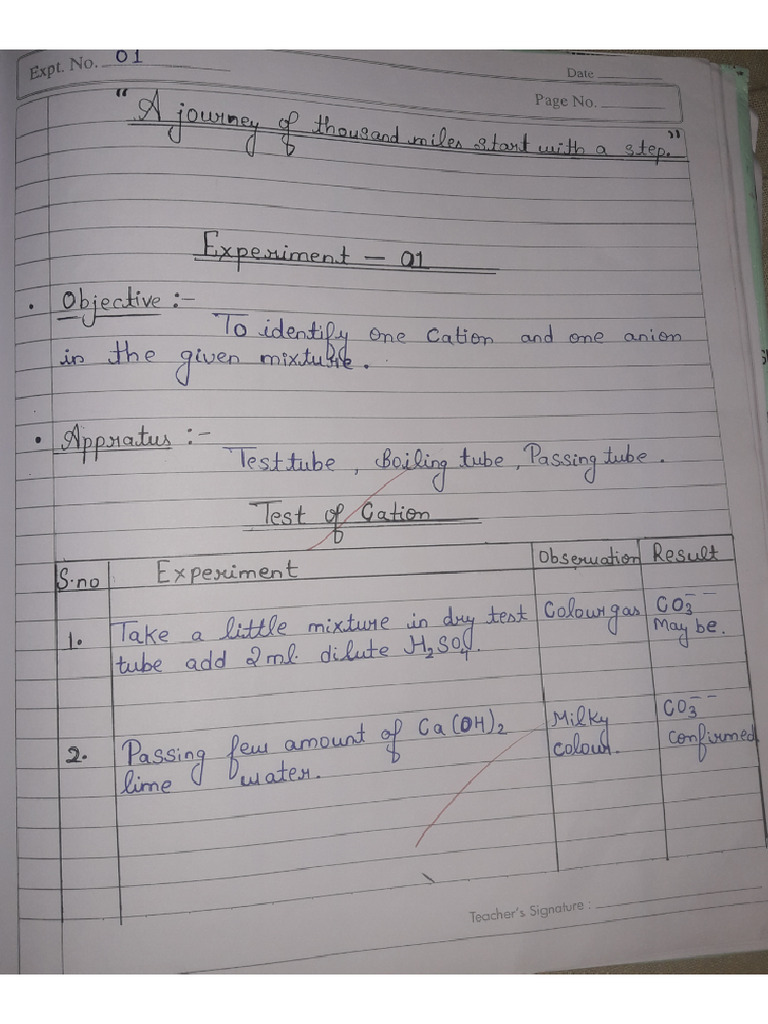 Expt. No. 01
Date
Page No.
"A journey of thousand miles start with a step."
Experiment - 01
• Objective :-
To identify one Cation and one anion
in the given mixture.
• Appratus :-
Test tube, Boiling tube, Passing tube.
Test of Cation
S.no Experiment Observation Result
1. Take a little mixture in dry test Colour gas CO3-- 
tube add 2 ml. dilute H2SO4. May be.
2. Passing few amount of Ca(OH)2 Milky CO3--
lime water. colour. confirmed
Teacher's Signature :